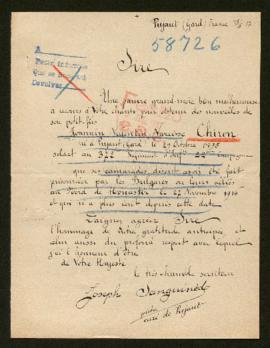 Pujaut (Gard) France
58726
A
Sire
Une pauvre grand-mère bien malheureuse
a recours à Votre charité pour obtenir des nouvelles de
son petit-fils
Valentin Narcisse Chiron
né à Pujaut, Gard, le 29 Octobre
soldat au 372 Régiment d'Inf. 22ème Comp.
que ses camarades disent avoir été fait
prisonnier par les Bulgares ou leurs alliés
au Nord de Monastir le 27 Novembre 1916
et qui n'a plus écrit depuis cette date
Daignez agréer Sire
l'hommage de Votre gratitude anticipée et
celui aussi du profond respect avec lequel
j'ai l'honneur d'être
de Votre Majesté
le très-humble serviteur
Joseph
curé de Pujaut